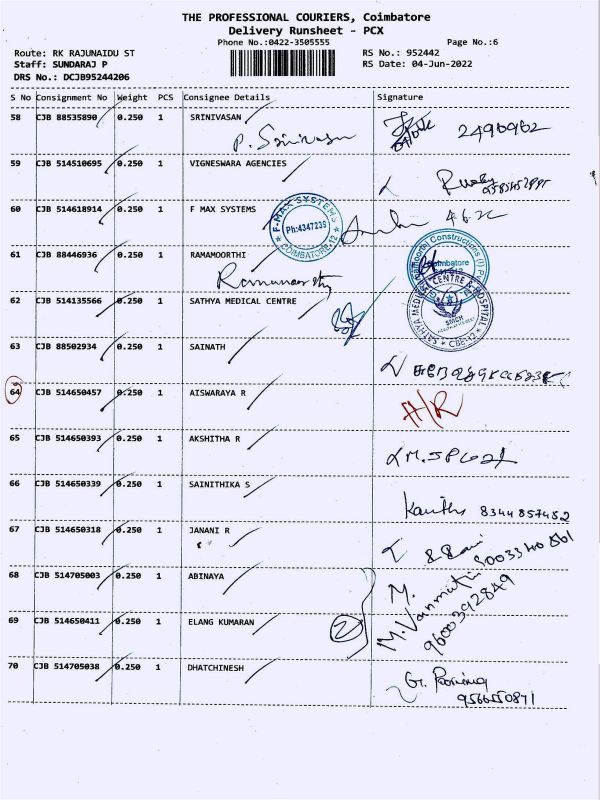 THE PROFESSIONAL COURIERS, Coimbatore
Delivery Runsheet - PCX
Phone No.:0422-3505555 Page No.:6
Route: RK RAJUNAIDU ST RS No.: 952442
Staff: SUNDARAJ P RS Date: 04-Jun-2022
DRS No.: DCJB95244206
S No Consignment No Weight PCS Consignee Details Signature
58 CJB 88535890 0.250 1 SRINIVASAN
P. Srinivasan 2496962
59 CJB 514510695 0.250 1 VIGNESWARA AGENCIES
60 CJB 514618914 0.250 1 F MAX SYSTEMS
F-MAX SYSTEMS
Ph:4347239
COIMBATORE-12
61 CJB 88446936 0.250 1 RAMAMOORTHI
Coimbatore
62 CJB 514135566 0.250 1 SATHYA MEDICAL CENTRE
SATHYA MEDICAL CENTRE & HOSPITAL
SMCH
CBE-12
63 CJB 88502934 0.250 1 SAINATH
64 CJB 514650457 0.250 1 AISWARAYA R
H/R
65 CJB 514650393 0.250 1 AKSHITHA R
66 CJB 514650339 0.250 1 SAINITHIKA S
8344857452
67 CJB 514650318 0.250 1 JANANI R
68 CJB 514705003 0.250 1 ABINAYA
M.
69 CJB 514650411 0.250 1 ELANG KUMARAN
2 M. Vanmathi
9600392849
70 CJB 514705038 0.250 1 DHATCHINESH
G.
9566550871